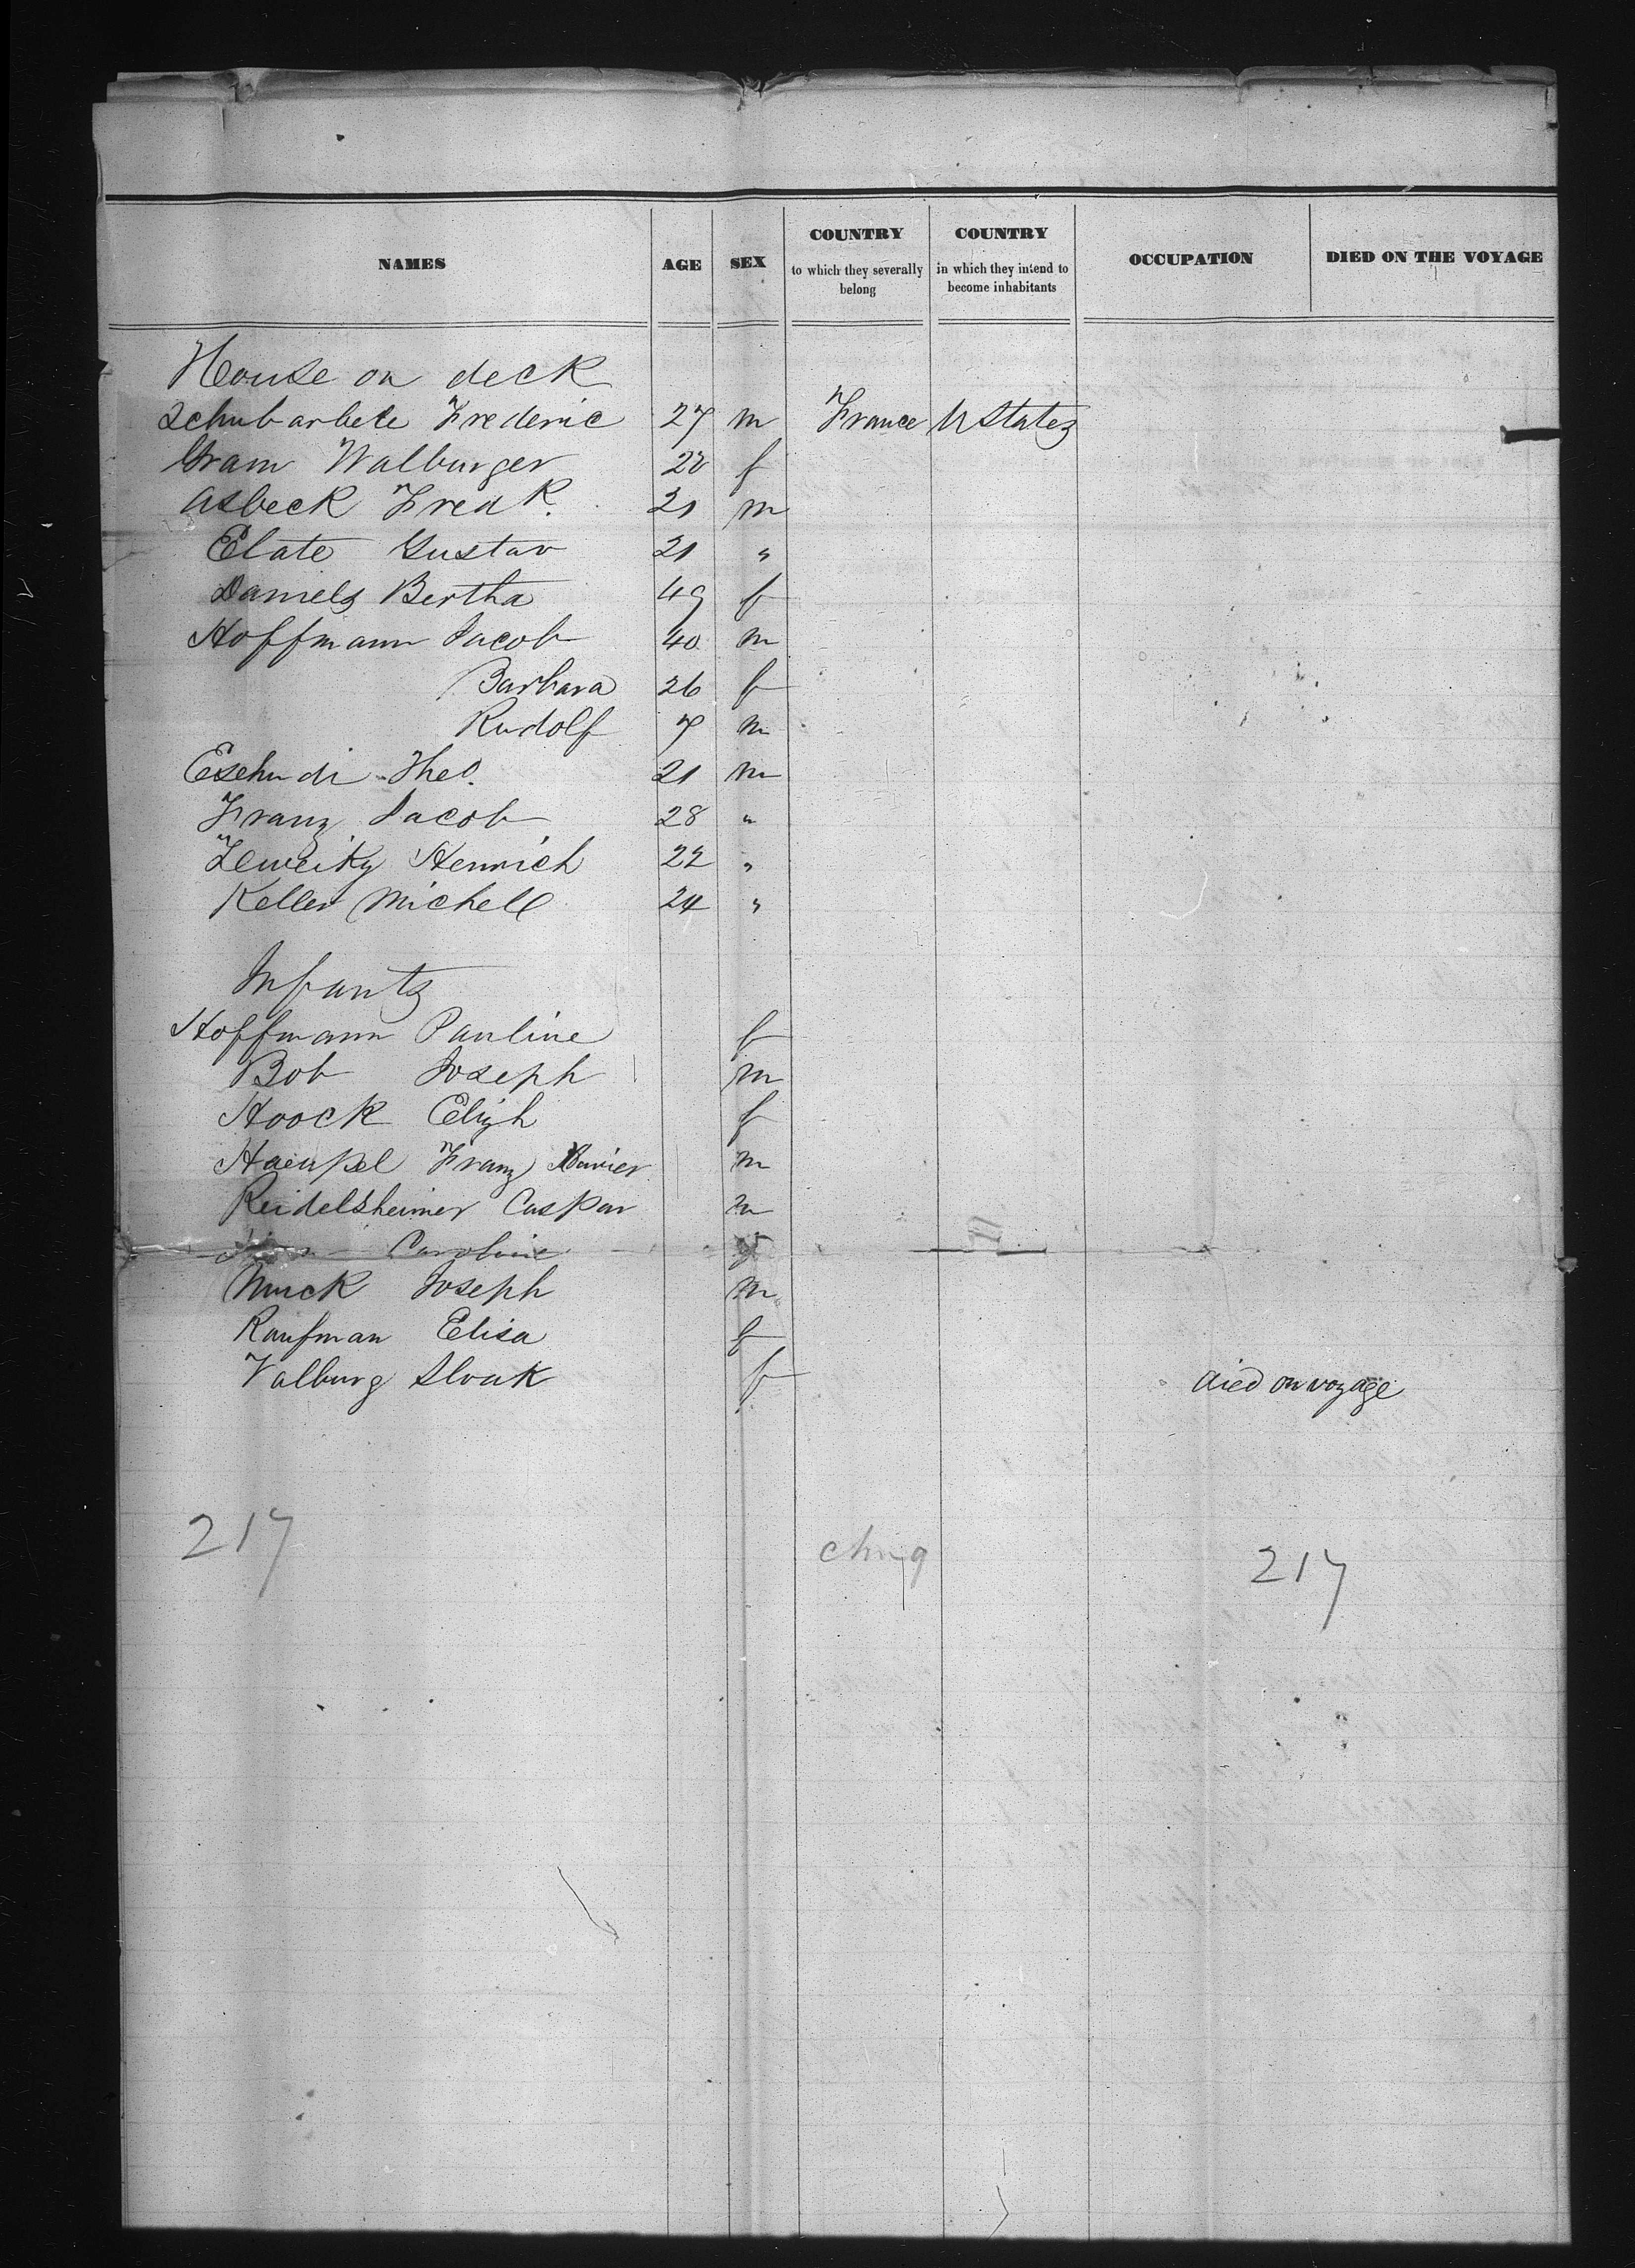 NAMES AGE SEX COUNTRY to which they severally belong COUNTRY in which they intend to become inhabitants OCCUPATION DIED ON THE VOYAGE
House on deck
Frederic 27 m France U States
Gram Walburger 22 f
Asbeck Fredk. 21 m
Elate Gustav 21 "
Daniels Bertha 49 f
Hoffmann Jacob 40 m
Barbara 26 f
Rudolf 7 m
Theo. 21 m
Franz Jacob 28 "
Henrich 22 "
Keller Michell 24 "
Infants
Hoffmann Pauline f
Bob Joseph m
Hoock Elizh f
Haenpel Franz Xavier m
Reidelsheimer Caspar m
Caroline f
Muck Joseph m
Kaufman Elisa f
Valburg f died on voyage
217 217